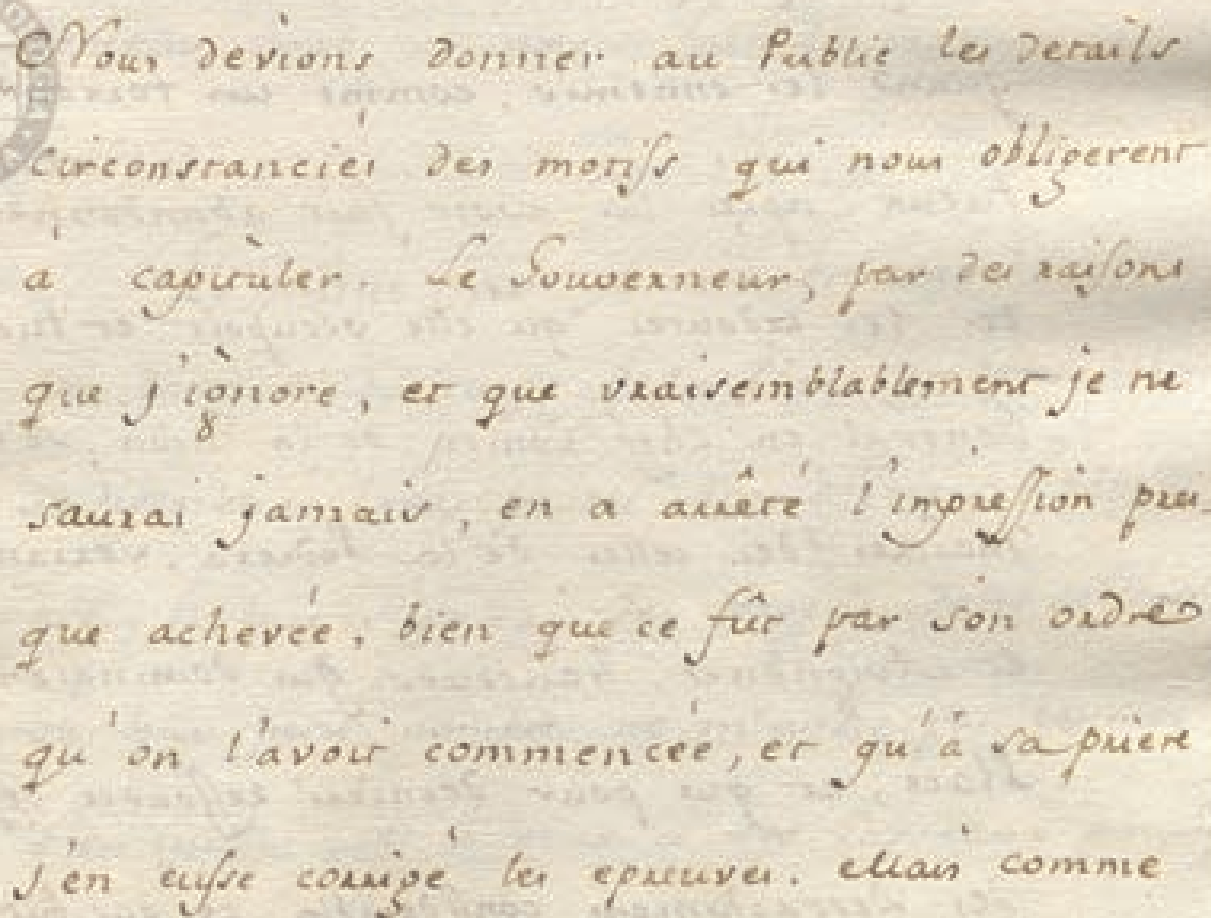 Nous devions donner au Public les details
circonstanciés des motifs qui nous obligerent
à capituler. Le Gouverneur, par des raisons
que j'ignore, et que vraisemblablement je ne
saurai jamais, en a arrêté l'impression pres-
que achevée, bien que ce fût par son ordre
qu'on l'avoit commencée, et qu'à sa priere
j'en eusse corrigé les epreuves. Mais comme